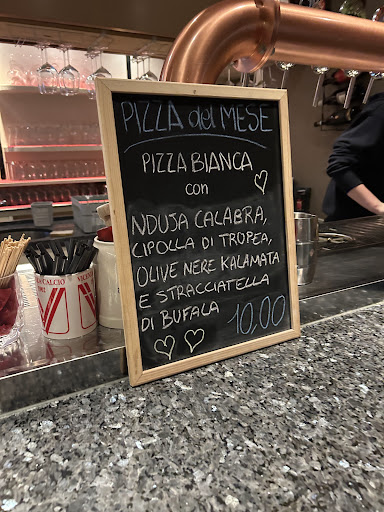 PIZZA del MESE
PIZZA BIANCA
con
NDUJA CALABRA,
CIPOLLA DI TROPEA,
OLIVE NERE KALAMATA
E STRACCIATELLA
DI BUFALA
10,00